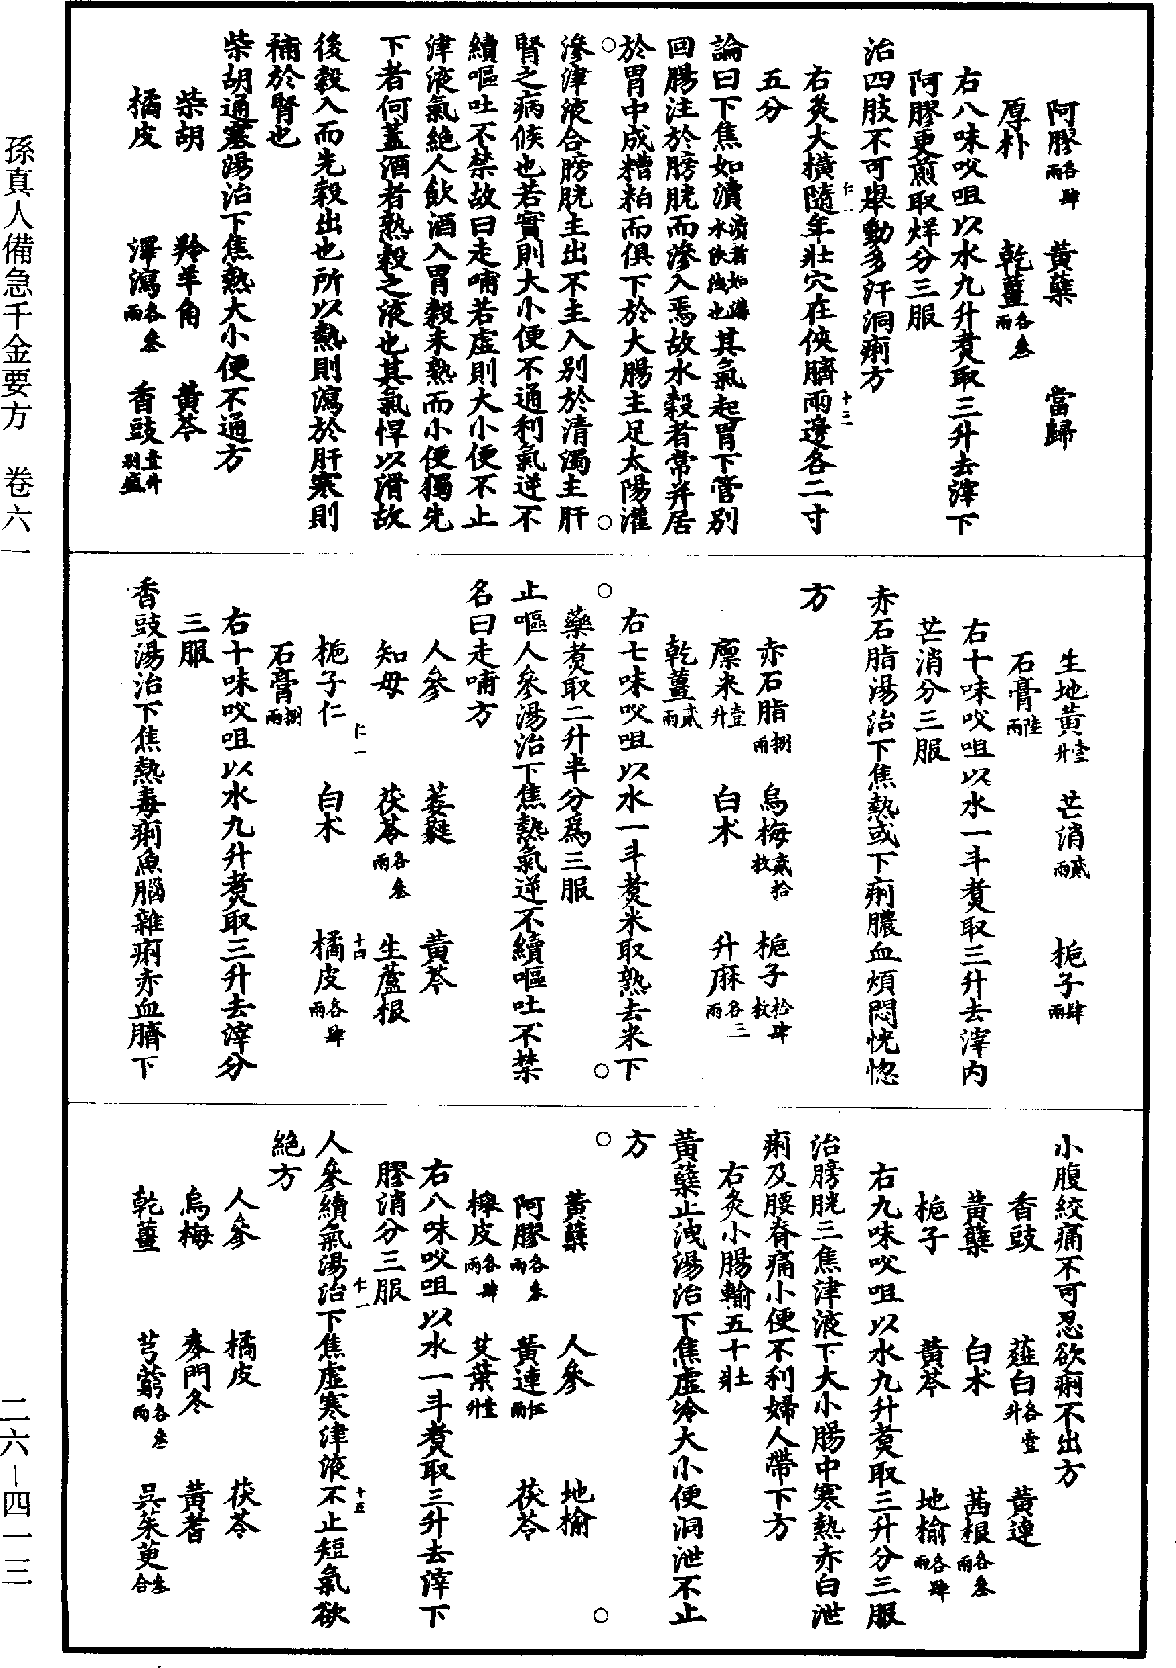 阿膠各肆兩　黃蘗　當歸
厚朴　乾薑各叁兩
右八味㕮咀以水九升煑取三升去滓下
阿膠更煎取烊分三服
治四肢不可舉動多汗洞痢方
右灸大橫隨年壯穴在俠臍兩邊各二寸
五分
論曰下焦如瀆瀆者如溝水決洩也其氣起胃下管別
回腸注於膀胱而滲入焉故水穀者常并居
於胃中成糟粕而俱下於大腸主足太陽灌
滲津液合膀胱主出不主入別於清濁主肝
腎之病候也若實則大小便不通利氣逆不
續嘔吐不禁故曰走哺若虛則大小便不止
津液氣絕人飲酒入胃穀未熟而小便獨先
下者何蓋酒者熟穀之液也其氣悍以滑故
後穀入而先穀出也所以熱則瀉於肝寒則
補於腎也
柴胡通塞湯治下焦熱大小便不通方
柴胡　羚羊角　黃芩
橘皮　澤瀉各叁兩　香豉壹升別盛
生地黃壹升　芒消貳兩　梔子肆兩
石膏陸兩
右十味㕮咀以水一斗煑取三升去滓內
芒消分三服
赤石脂湯治下焦熱或下痢膿血煩悶恍惚
方
赤石脂捌兩　烏梅貳拾枚　梔子拾肆枚
廩米壹升　白朮　升麻各三兩
乾薑貳兩
右七味㕮咀以水一斗煑米取熟去米下
藥煑取二升半分爲三服
止嘔人參湯治下焦熱氣逆不續嘔吐不禁
名曰走哺方
人參　萎蕤　黃芩
知母　茯苓各叁兩　生蘆根
梔子仁　白朮　橘皮各肆兩
石膏捌兩
右十味㕮咀以水九升煑取三升去滓分
三服
香豉湯治下焦熱毒痢魚腦雜痢赤血臍下
小腹絞痛不可忍欲痢不出方
香豉　薤白各壹升　黃連
黃蘗　白朮　茜根各叁兩
梔子　黃芩　地榆各肆兩
右九味㕮咀以水九升煑取三升分三服
治膀胱三焦津液下大小腸中寒熱赤白泄
痢及腰脊痛小便不利婦人帶下方
右灸小腸輸五十壯
黃蘗止洩湯治下焦虛冷大小便洞泄不止
方
黃蘗　人參　地榆
阿膠各叁兩　黃連伍兩　茯苓
櫸皮各肆兩　艾葉壹升
右八味㕮咀以水一斗煑取三升去滓下
膠消分三服
人參續氣湯治下焦虛寒津液不止短氣欲
絕方
人參　橘皮　茯苓
烏梅　麥門冬　黃耆
乾薑　芎藭各叁兩　吳茱萸叁合
孫真人備急千金要方　卷六一
二六－四一三